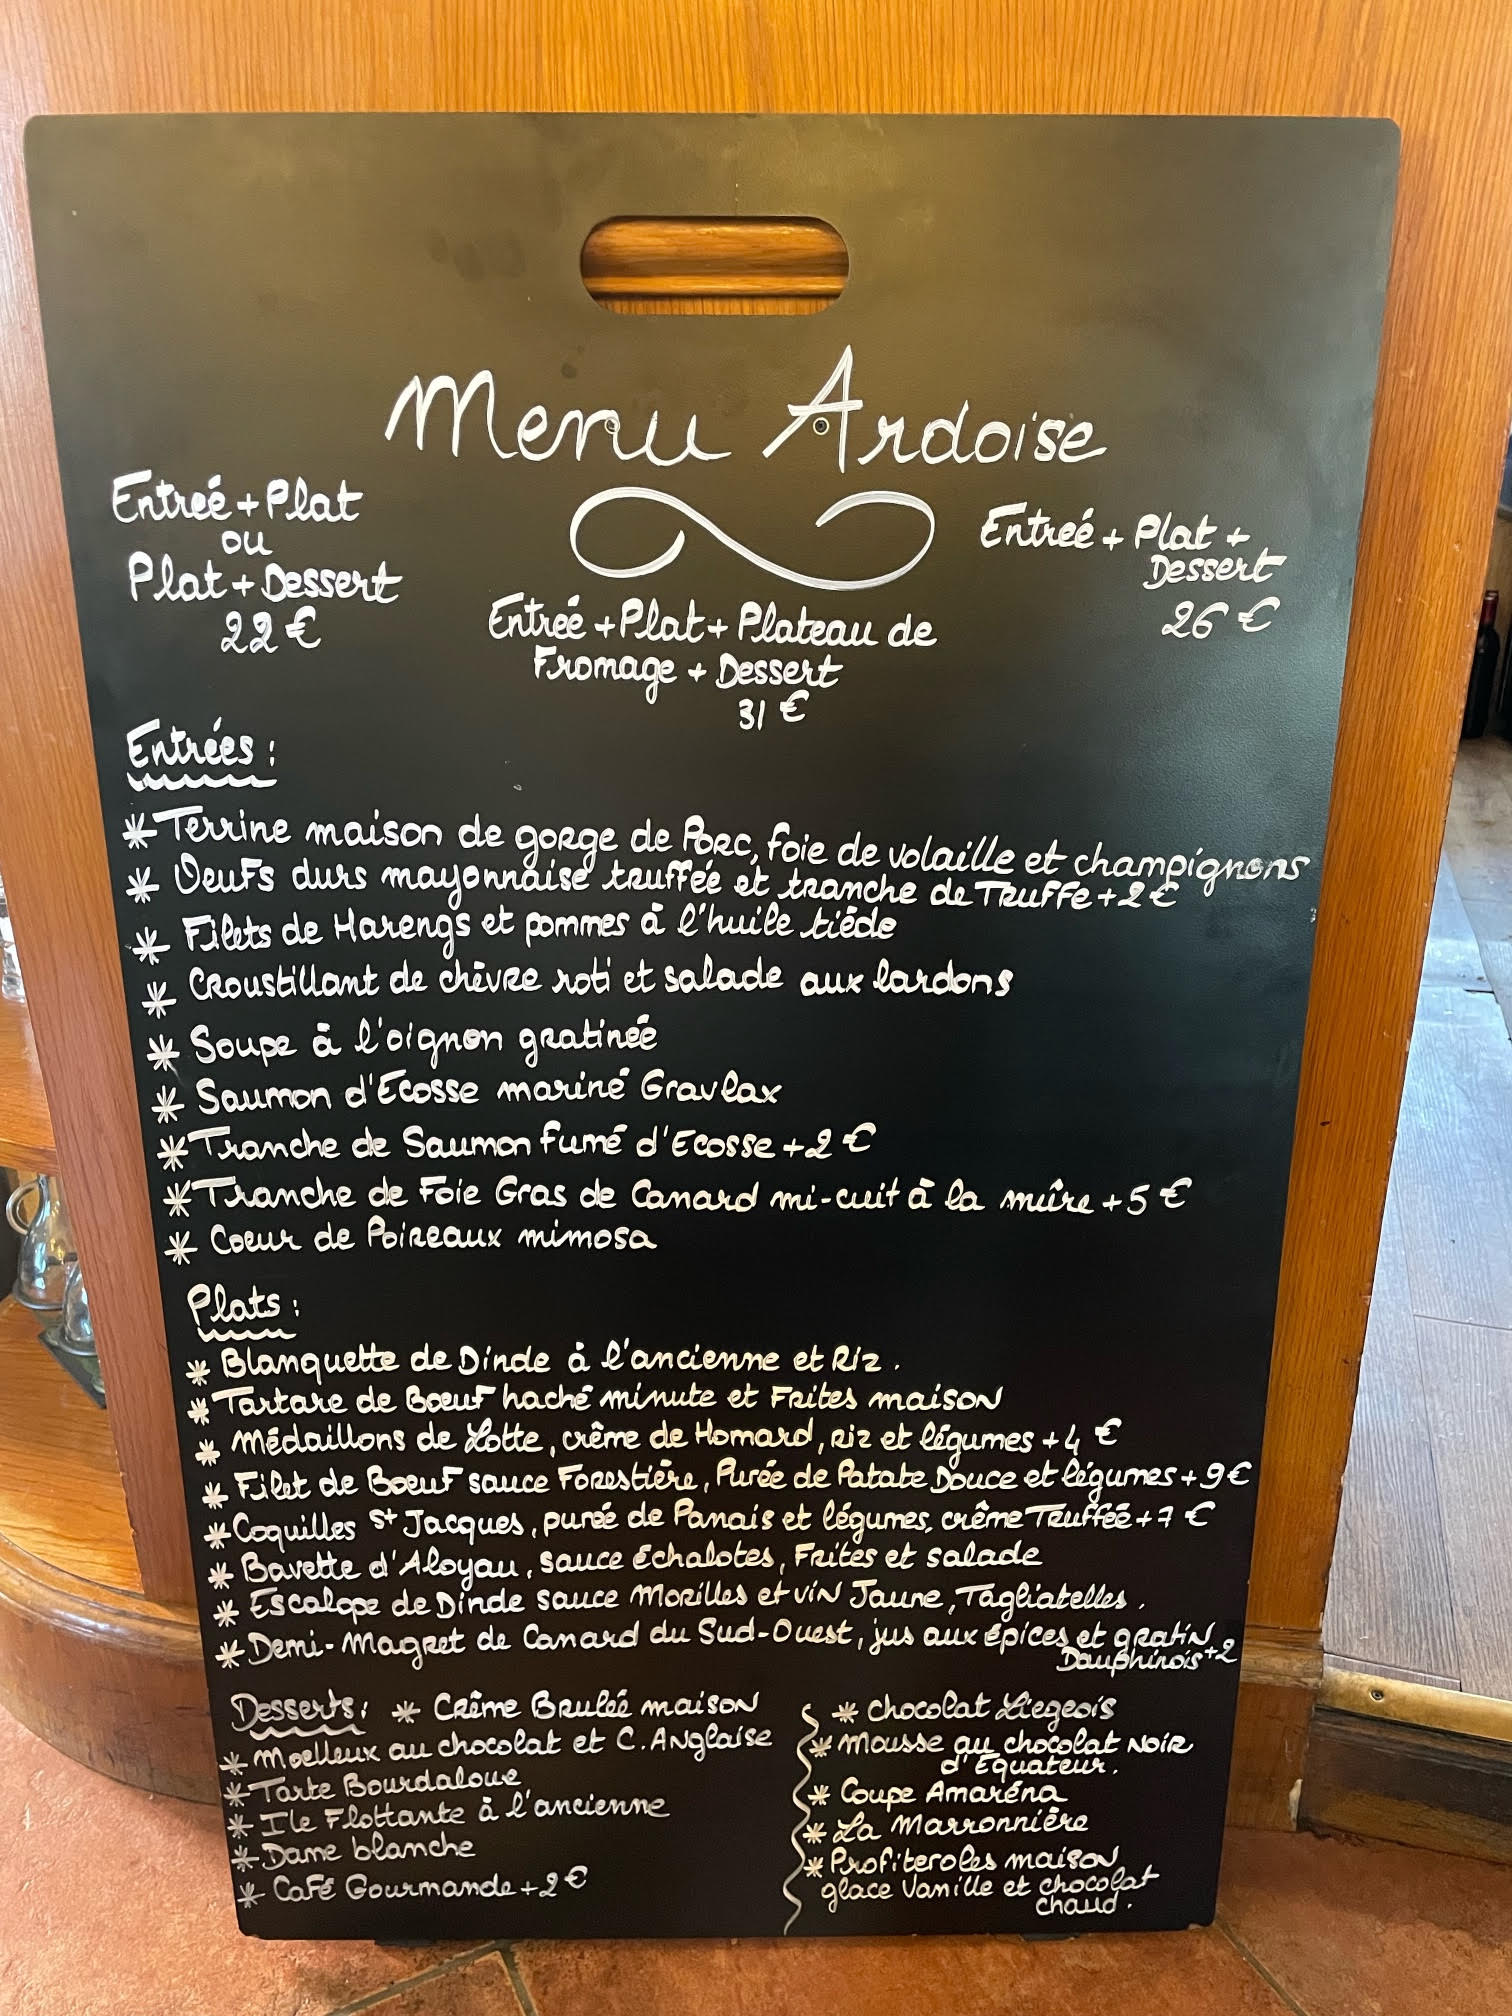 Menu Ardoise
Entreé + Plat
ou
Plat + Dessert
22 €
Entrée + Plat + Plateau de
Fromage + Dessert
31 €
Entreé + Plat +
Dessert
26 €
Entrées :
* Terrine maison de gorge de Porc, foie de volaille et champignons
* Oeufs durs mayonnaise truffée et tranche de Truffe + 2 €
* Filets de Harengs et pommes à l'huile tiède
* Croustillant de chèvre roti et salade aux lardons
* Soupe à l'oignon gratinée
* Saumon d'Ecosse mariné Gravlax
* Tranche de Saumon fumé d'Ecosse + 2 €
* Tranche de Foie Gras de Canard mi-cuit à la mûre + 5 €
* Coeur de Poireaux mimosa
Plats :
* Blanquette de Dinde à l'ancienne et Riz .
* Tartare de Boeuf haché minute et Frites maison
* Médaillons de Lotte, crême de Homard, riz et légumes + 4 €
* Filet de Boeuf sauce Forestière, Purée de Patate Douce et légumes + 9 €
* Coquilles St Jacques, purée de Panais et légumes, crême Truffée + 7 €
* Bavette d'Aloyau, sauce Échalotes, Frites et salade
* Escalope de Dinde sauce Morilles et vin Jaune, Tagliatelles .
* Demi-Magret de Canard du Sud-Ouest, jus aux épices et gratin
Dauphinois + 2
Desserts : * Crême Brulée maison
* Moelleux au chocolat et C. Anglaise
* Tarte Bourdaloue
* Ile Flottante à l'ancienne
* Dame blanche
* Café Gourmande + 2 €
* Chocolat Liegeois
* Mousse au chocolat noir
d'Equateur.
* Coupe Amaréna
* La Marronnière
* Profiteroles maison
glace Vanille et chocolat
chaud .